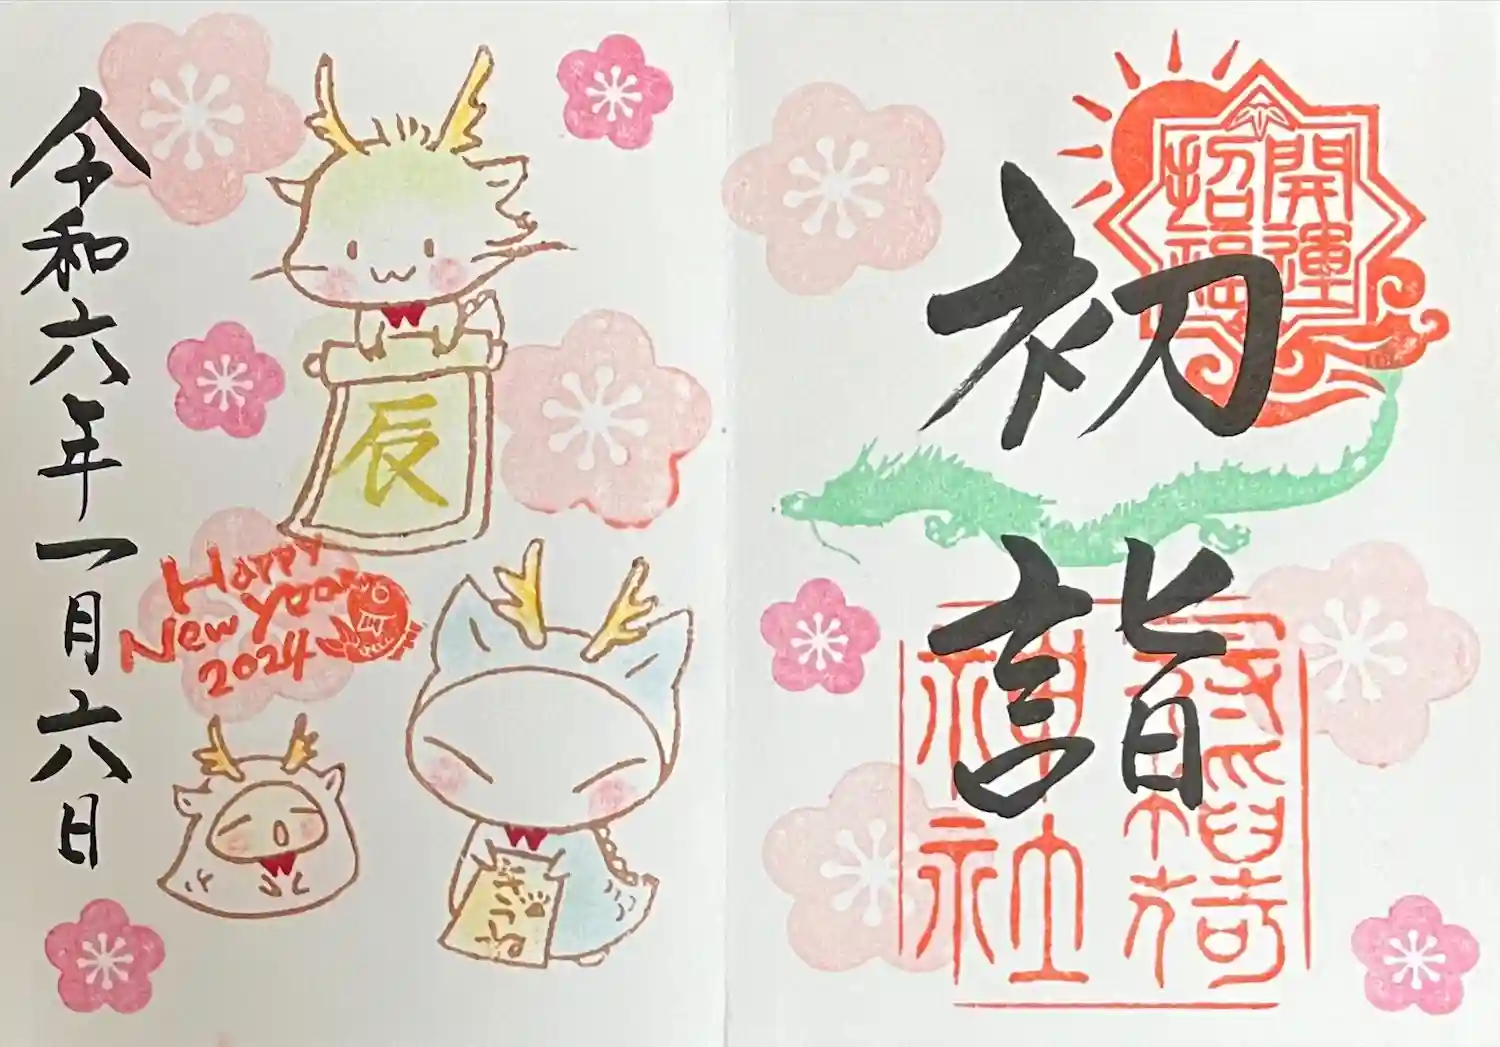 開運
招福
初詣
稲荷
神社
辰
Happy
New Year
2024
きつね
令和六年一月六日